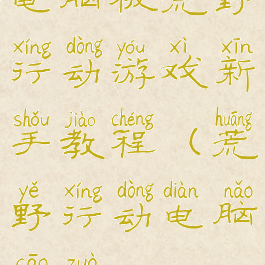 电脑版荒野
xíng dòng yóu xì xīn
行动游戏新
shǒu jiào chéng huāng
手教程（荒
yě xíng dòng diàn nǎo
野行动电脑
cāo zuò